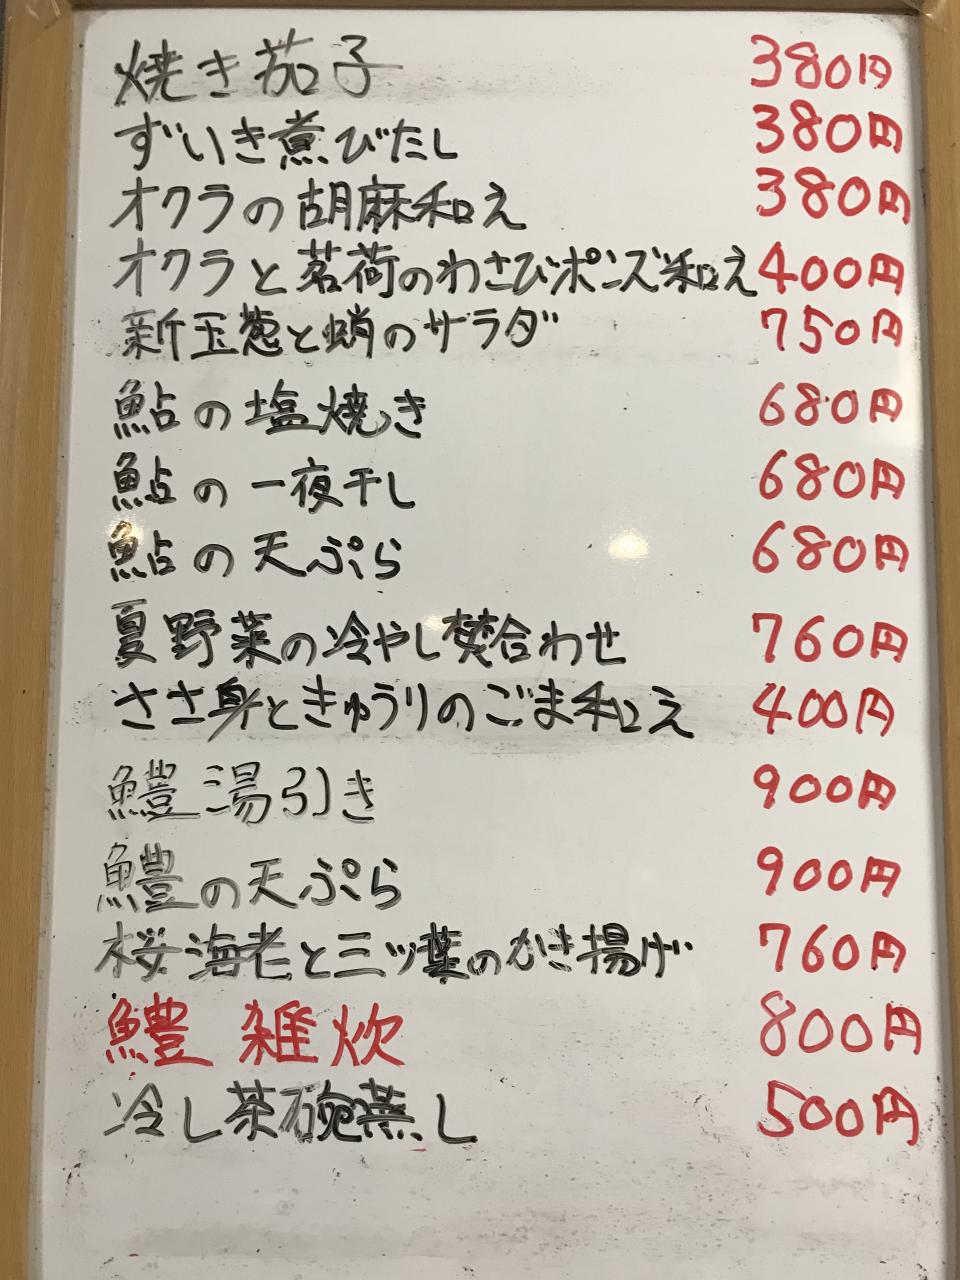 焼き茄子 380円
ずいき煮びたし 380円
オクラの胡麻和え 380円
オクラと茗荷のわさびポンズ和え 400円
新玉葱と蛸のサラダ 750円
鮎の塩焼き 680円
鮎の一夜干し 680円
鮎の天ぷら 680円
夏野菜の冷やし焚合わせ 760円
ささ身ときゅうりのごま和え 400円
鱧湯引き 900円
鱧の天ぷら 900円
桜海老と三ツ葉のかき揚げ 760円
鱧 雑炊 800円
冷し茶碗蒸し 500円